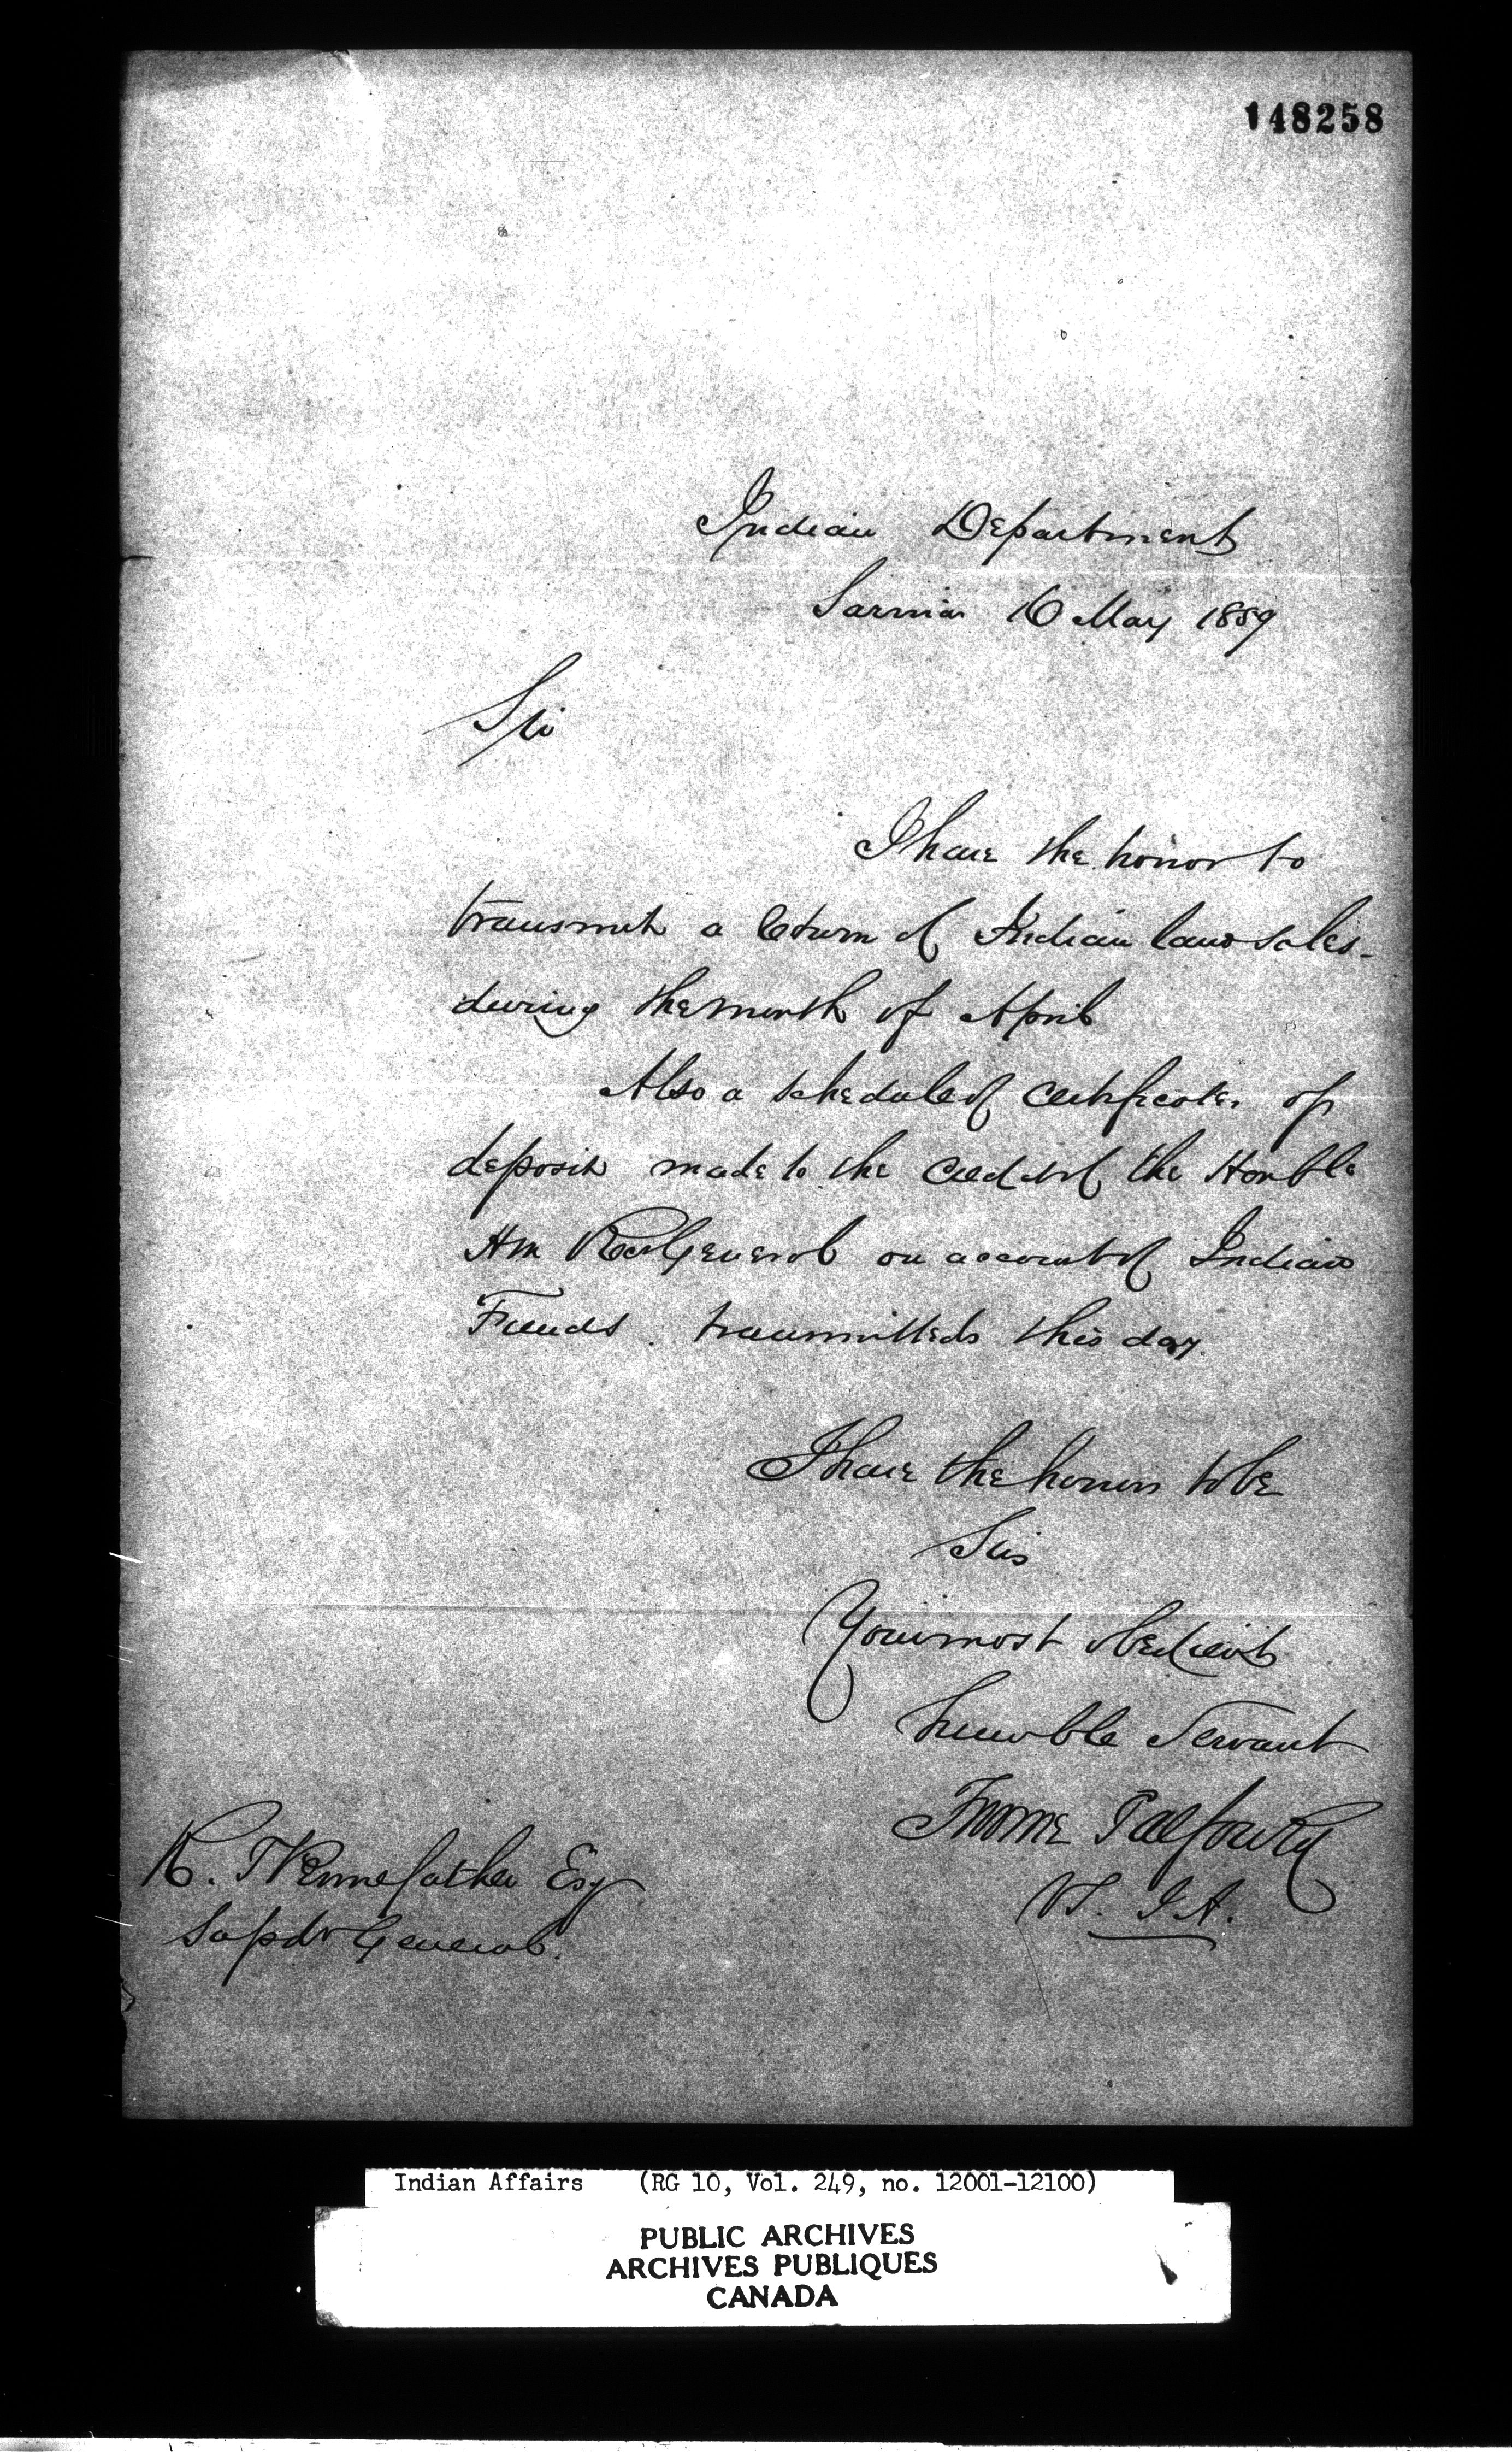 148258
Indian Department
Sarnia 16 May 1859
Sir
I have the honor to
transmit a Return of Indian land sales
during the month of April
Also a schedule of Certificates of
deposit made to the Credit of the Honble
Rec General on account of Indian
Funds. transmitted this day.
I have the honor to be
Sir
Your most obedient
humble Servant
Froome Talfourd
V.S. I.A.
R. T Pennefather Esq
Supdt General.
Indian Affairs (RG 10, Vol. 249, no. 12001-12100)
PUBLIC ARCHIVES
ARCHIVES PUBLIQUES
CANADA